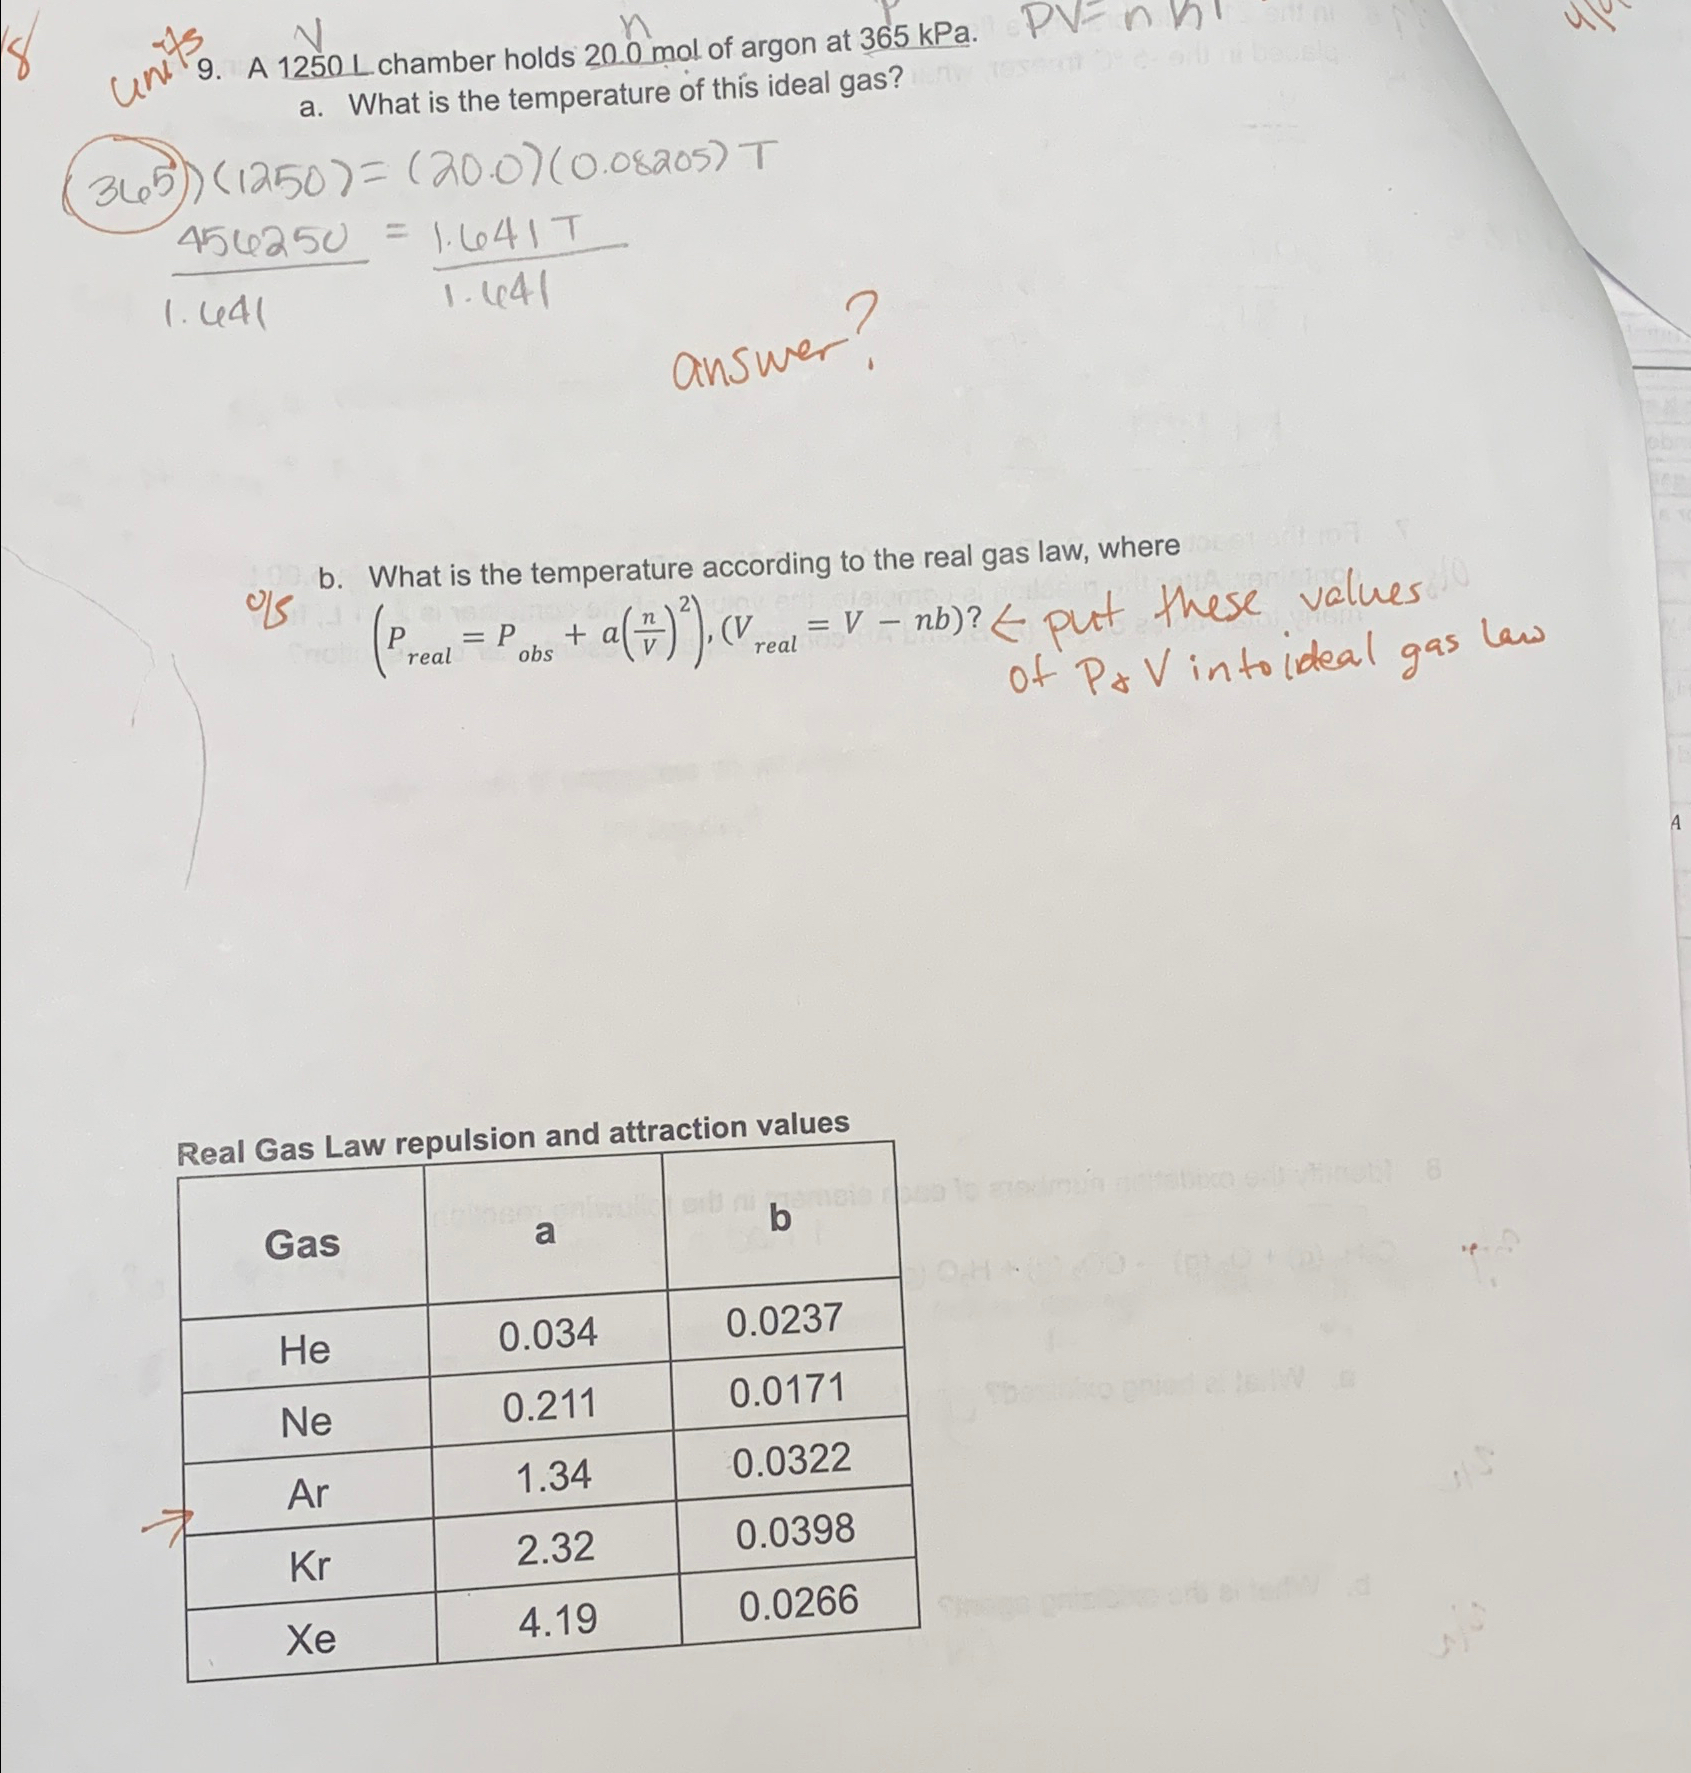 units
V
n
P
PV=nRT
9. A 1250 L chamber holds 20.0 mol of argon at 365 kPa.
a. What is the temperature of this ideal gas?
(365)(1250)=(20.0)(0.08205)T
456250 = 1.641T
1.641 1.641
answer?
b. What is the temperature according to the real gas law, where
0/5
(P real = P obs + a(n/V)²), (V real = V - nb)? ← put these values
of P & V into ideal gas law
Real Gas Law repulsion and attraction values
Gas a b
He 0.034 0.0237
Ne 0.211 0.0171
Ar 1.34 0.0322
Kr 2.32 0.0398
Xe 4.19 0.0266